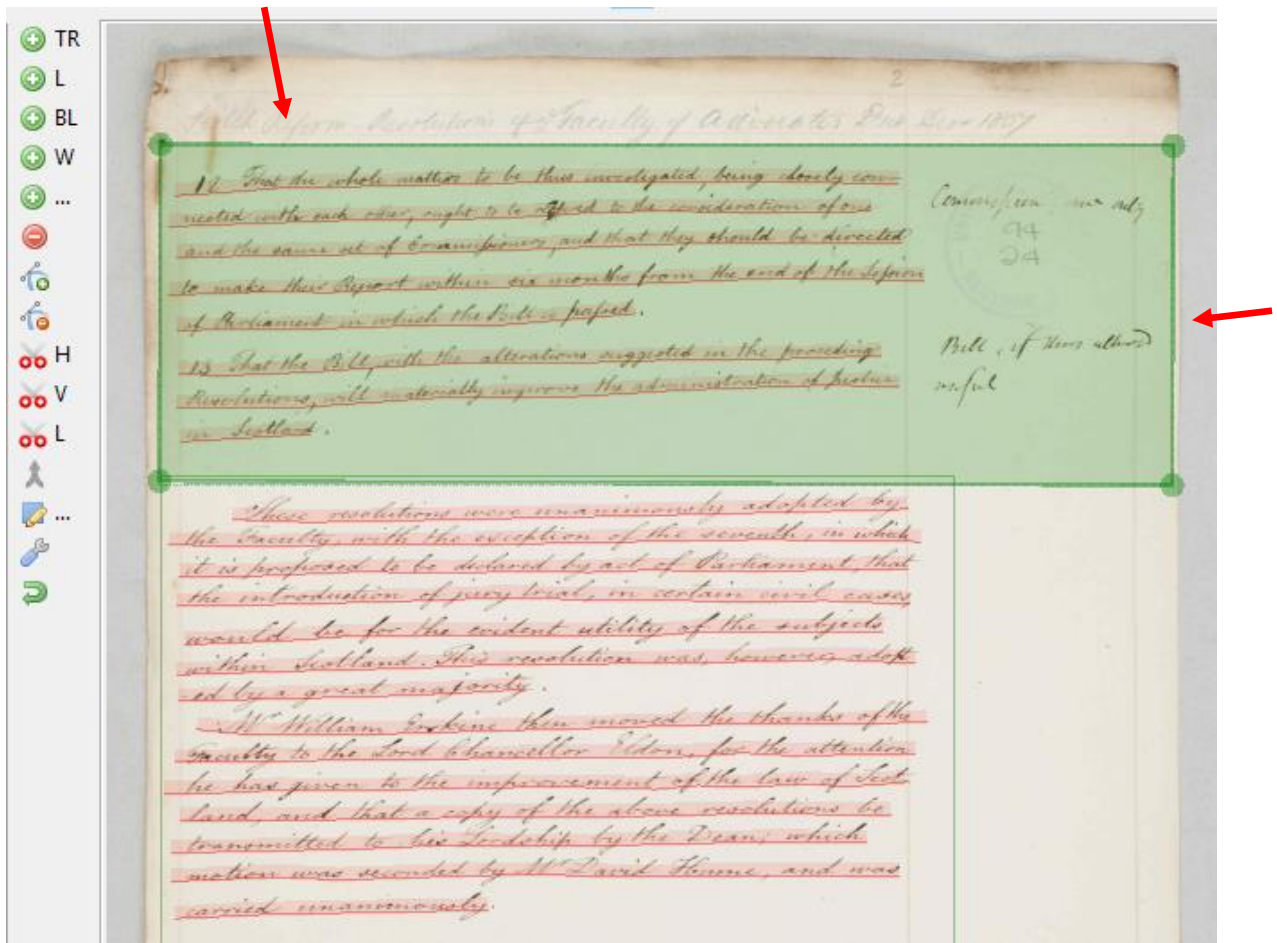 TR
L
BL
W
...
H
V
L
...
2
Reform Resolutions of Faculty of Advocates Dec 1807
12 That the whole matters to be thus investigated, being closely con=
nected with each other, ought to be referred to the consideration of one
and the same set of Commissioners, and that they should be directed
to make their Report within six months from the end of the Session
of Parliament in which the Bill is passed.
Commission one only
94
24
13 That the Bill, with the alterations suggested in the preceding
Resolutions, will materially improve the administration of Justice
in Scotland.
Bill, if thus altered
useful
These resolutions were unanimously adopted by
the Faculty, with the exception of the seventh, in which
it is proposed to be declared by act of Parliament, that
the introduction of jury trial, in certain civil cases,
would be for the evident utility of the subjects
within Scotland. This resolution was, however, adopt
-ed by a great majority.
Mr William Erskine then moved the thanks of the
Faculty to the Lord Chancellor Eldon, for the attention
he has given to the improvement of the law of Scot
land, and that a copy of the above resolutions be
transmitted to his Lordship by the Dean; which
motion was seconded by Mr David Hume, and was
carried unanimously.